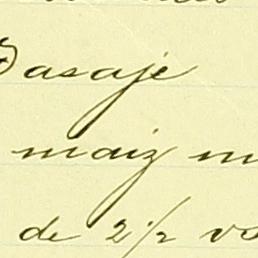 Pasaje
maiz m
de 2 1/2 va